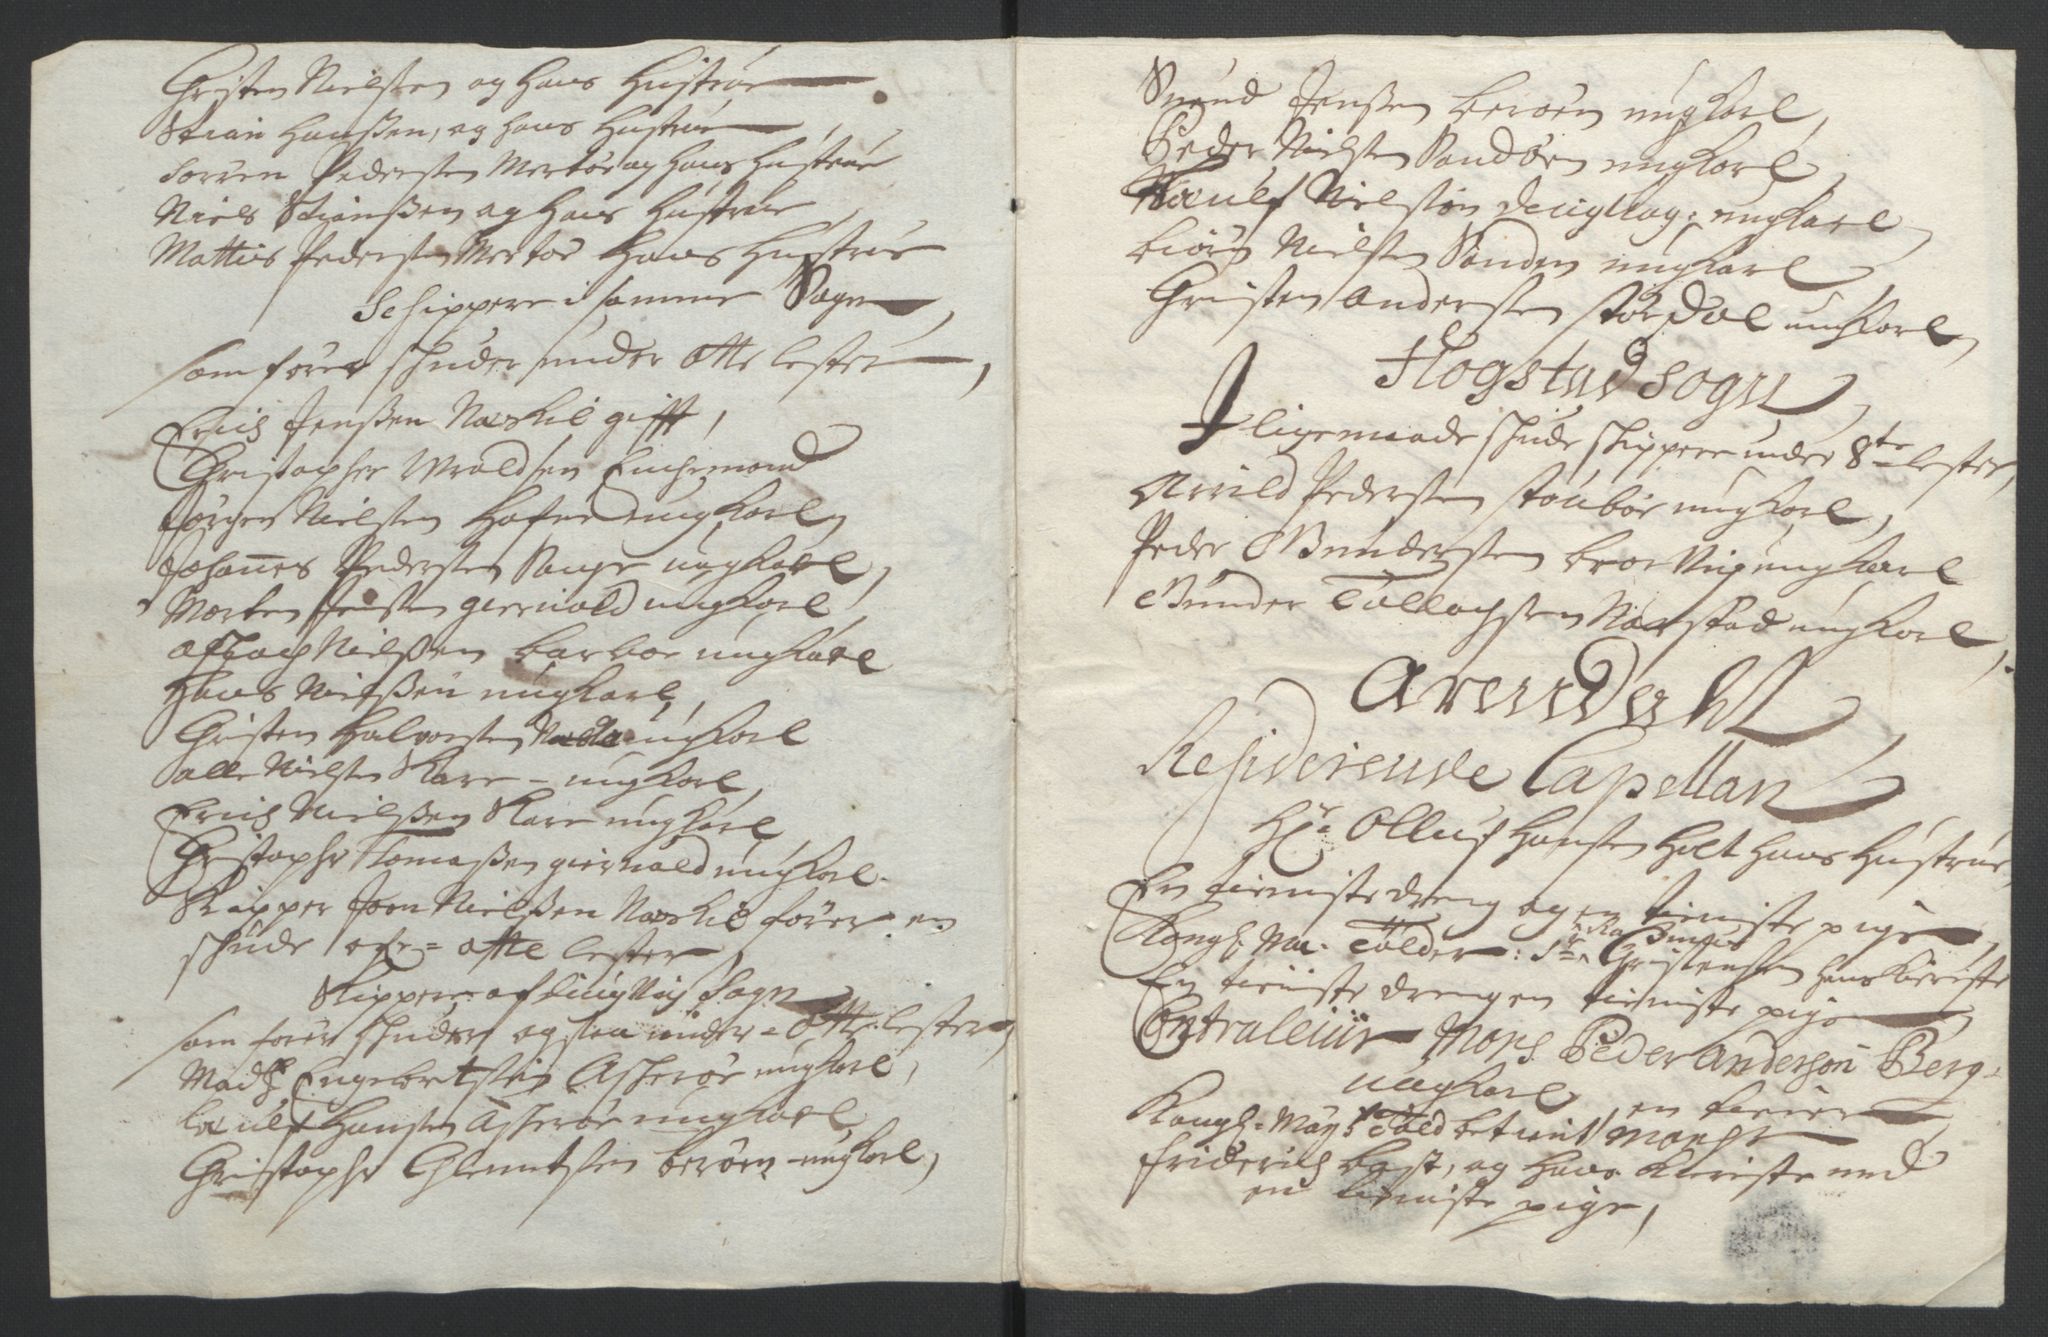 Christen Nielsen og hans hustrue
Stian Hanßen, og hans hustrue
Sorren Pedersen Mertøe og hans hustrue
Niels Stianßen og hans hustrue
Mattis Pedersen Mertøe hans hustrue
Schippere i samme Sogn
som fører schuder under otte lester
Erich Jenßen Naeskil gifft,
Christopher Wroldsen Enchemand
Jørgen Nielsen Hafned ungkarl
Johannes Pedersen Sange ungkarl,
Morten Jensen giervold ungkarl
Aslach Nielßen barboe ungkarl
Hans Nielßen ungkarl,
Christen Halvorsen ungkarl
alle Nielsen Skare - ungkarl
Erich Nielßen Skare ungkarl
Christopher Tomaßen giervold ungkarl
Skipper Joen Nielßen Naeskil fører en
schude ofr = otte lester,
Skippere af Sogn
som fører schuder og staa under = otte lester
Madtz Engebretsen Askerøe ungkarl,
Laulf Hansen Askerøe ungkarl,
Christopher Clemmetsen berøen - ungkarl,
Svend Jenßen berøen ungkarl,
Peder Nielsen Sandøen ungkarl,
Nielsen ungkarl
biørn Nielsen Sanden ungkarl
Christen Andersen Stordal ungkarl
Flogstad Sogn
I ligemaade schude skippere under 8te lester,
Arvild Pedersen Stoubøe ungkarl,
Peder Gunderßen ungkarl
Gunder Tallachsen Narstad ungkarl,
Arendahl
Residerende Capellan
Hr. Olluf Hansen Holt hans hustrue,
En tieniste dreng og en tieniste pige
Kongl. Ma. Tolder: Sr. Christensen hans kieriste
En tieniste dreng en tieniste pige
Contraleiur Mons. Peder Anderson Berg =
ungkarl en tiener
Kongl. May: Told betient Monsr
Friderich og hans kieriste med
en tieniste pige,